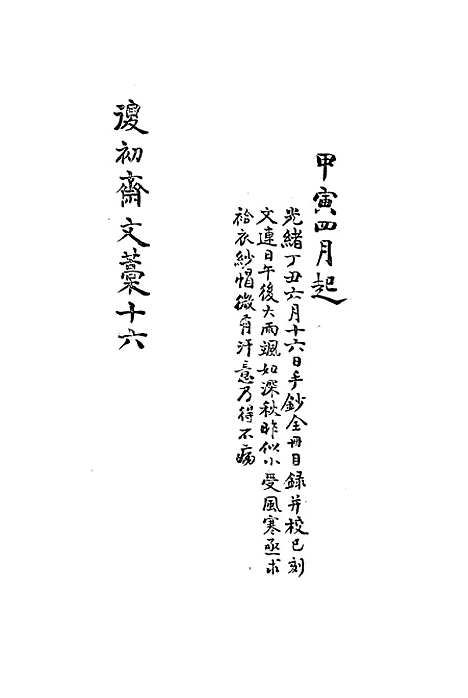 甲寅四月起
光緒丁丑六月十六日手鈔全冊目録并校已刻
文連日午後大雨颯如深秋昨似小受風寒亟求
袷衣紗帽微有汗意乃得不病
復初齋文藁十六